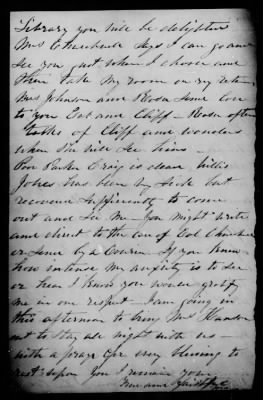 Library you will be delighted
Mrs says I can go and
see you just when I choose and
then take my room on my return
Mrs Johnson and Rosa send love
to you Eat and Cliff - Rosa often
talks of Cliff and wonders
when she will see him -
Poor Parker Craig is dead. Willis
Jones has been very sick but
recovered sufficiently to come
out and see me - You might write
and direct to the care of Col
or send by a Courier. If you knew
how intense my anxiety is to see
or hear I know you would gratify
me in one respect - I am going in
this afternoon to bring Mrs
out to stay all night with us -
with a prayer for every blessing to
rest upon you I remain your
true and faithful